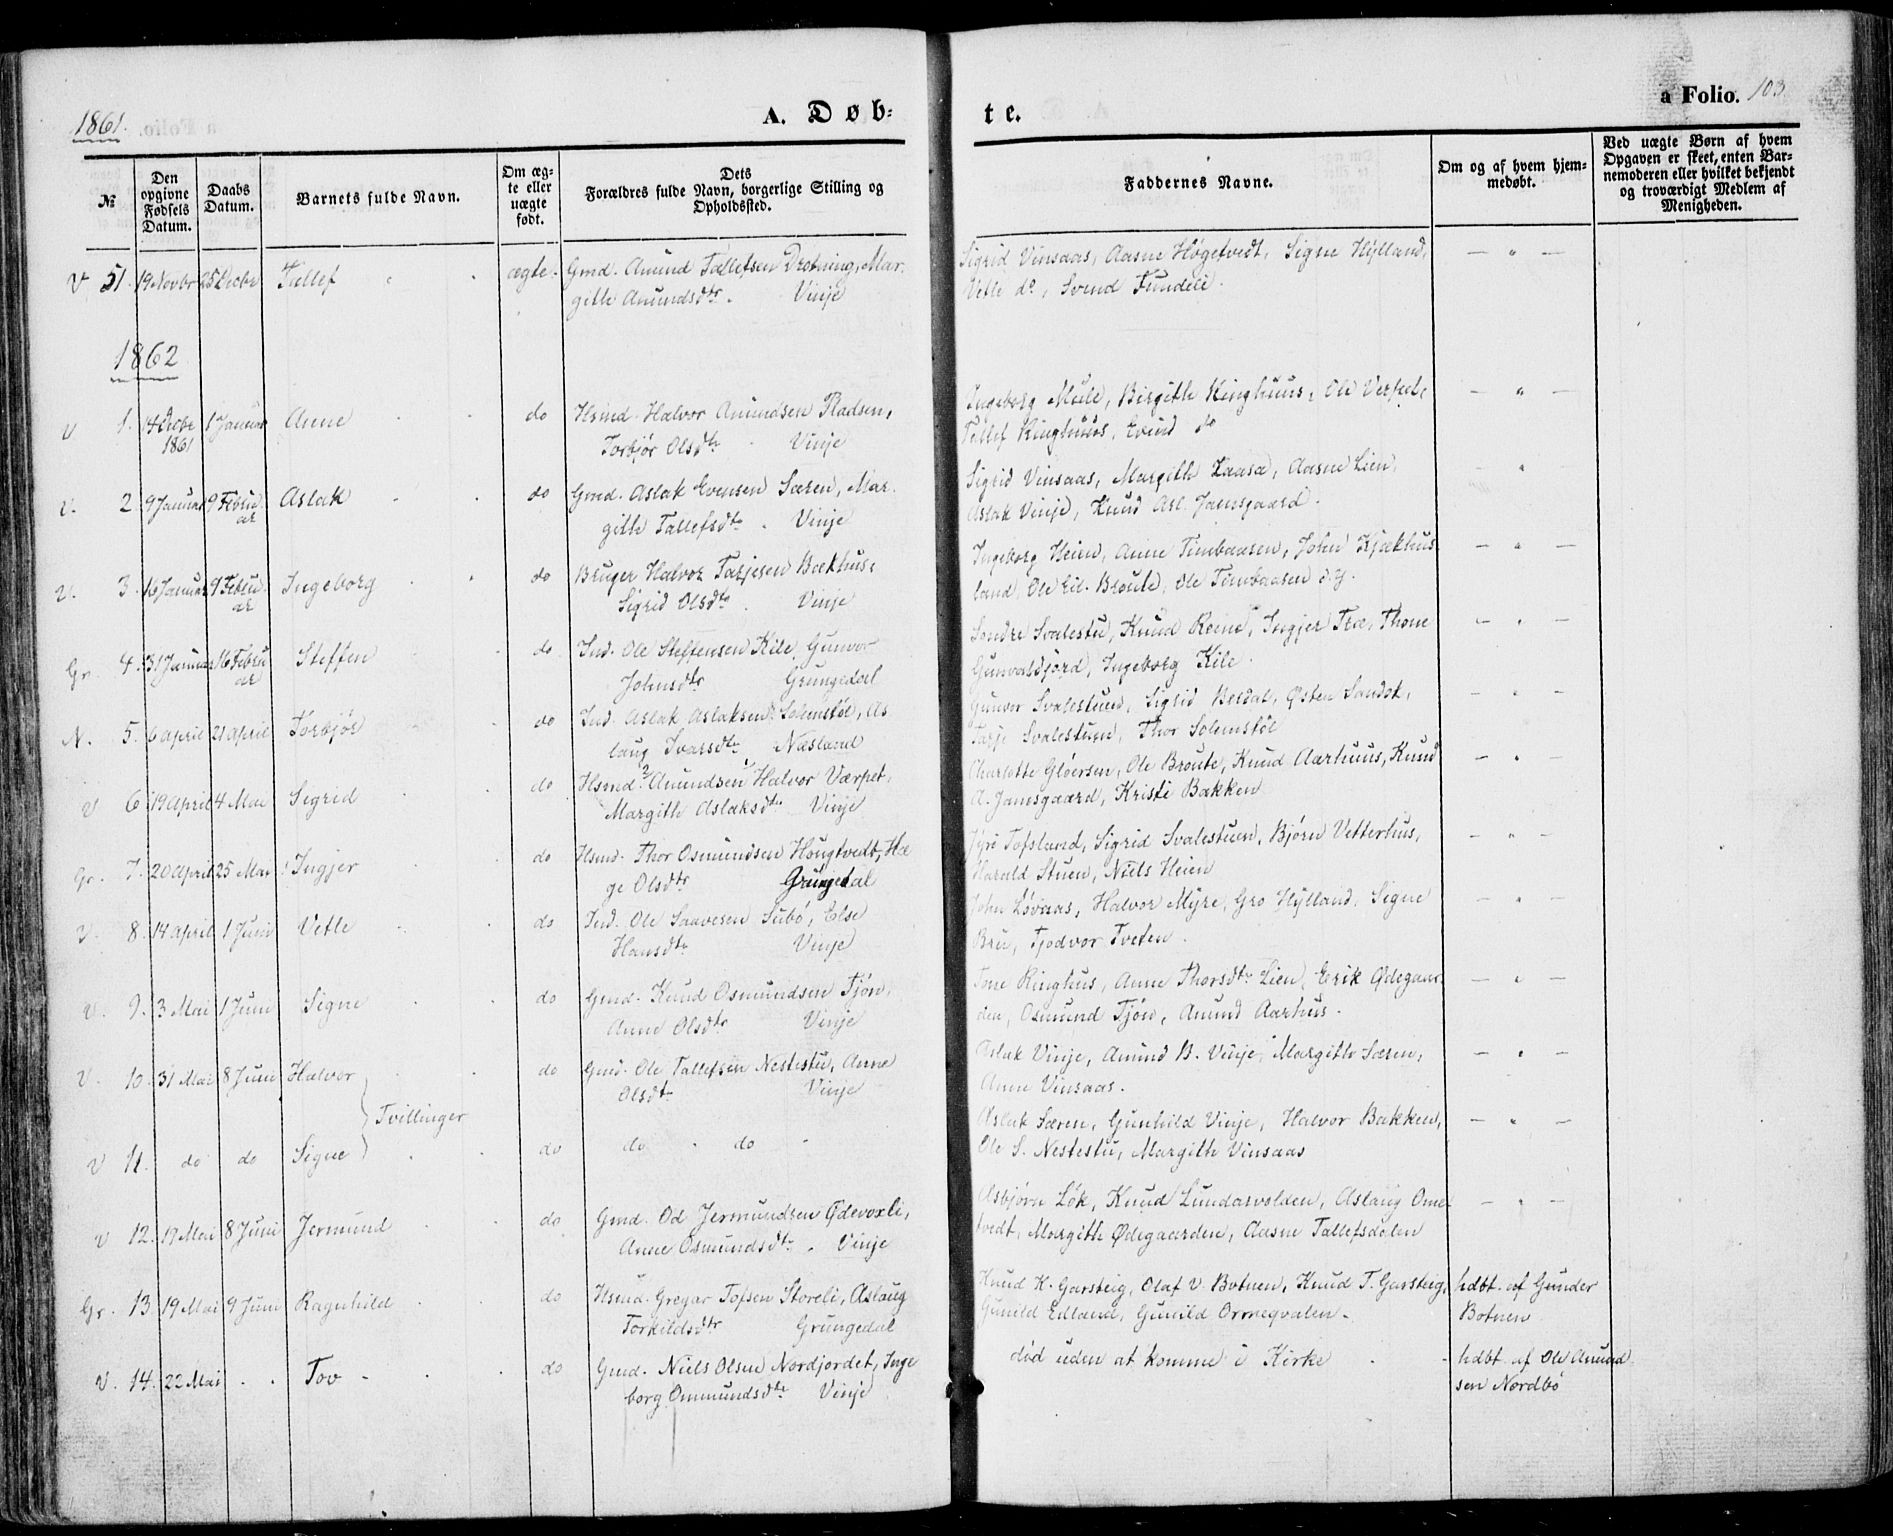 1861. A. Døb- te. a Folio. 103
№ Den opgivne Fødsels Datum. Daabs Datum. Barnets fulde Navn. Om ægte eller uægte født. Dets Forældres fulde Navn, borgerlige Stilling og Opholdssted. Faddernes Navne. Om og af hvem hjemmedøbt. Ved uægte Børn af hvem Opgaven er skeet, enten Barnemoderen eller hvilket bekjendt og troværdigt Medlem af Menigheden.
V 51. 19 Novbr 25 Decbr Tallef " . ægte. Gmd. Anund Tallefsen Drotning, Mar- Sigrid Vinsaas, Aasne Høgetvedt, Signe Hylland, — " —
gith Anundsdtr. Vinje Vetle do, Svend Fundeli.
1862
V 1. 14 Decbr 1861 1 Januar Anne do Hsmd. Halvor Anundsen Pladsen, Ingeborg Mule, Birgith Ringhuus, Ole Verpet, — " —
Torbjør Olsdtr Vinje Tallef Ringhuus, Evind do
V. 2 9 Januar 9 Februar Aslak do Gmd. Aslak Evensen Særen, Mar- Sigrid Vinsaas, Margith Laasa, Aasne Lien, — " —
gith Tallefsdtr. Vinje Aslak Vinje, Knud Asl. Jamsgaard.
V. 3. 16 Januar 9 Februar Ingeborg do Bruger Halvor Tarjesen Bækhus, Ingeborg Heien, Anne Timbaasen, John Kjækhus — " —
Sigrid Olsdtr. Vinje land, Ole Eil. Broute, Ole Timbaasen d.y.
Gr. 4. 31 Januar 16 Februar Steffen do Ind. Ole Steffensen Kile, Gunvor Sondre Svalestu, Knud Reine, Ingjer Træ, Thone — " —
Johnsdtr Grungedal Gunvaldsjord, Ingeborg Kile.
N. 5. 6 april 21 april Torbjør do Ind. Aslak Aslaksen Solemstøl, As Gunvor Svalestuen, Sigrid Berdal, Østen Sandok, — " —
laug Ivarsdtr Næsland Tarje Svalestuen, Thor Solemstøl
V 6. 19 april 4 Mai Sigrid do Hsmd. Anundsen Halvor Værpet, Charlotte Gløersen, Ole Broute, Knud Aarhuus, Knud — " —
Margith Aslaksdtr Vinje A. Jamsgaard, Kristi Bakken
Gr. 7. 20 april 25 Mai Ingjer do Hsmd. Thor Osmundsen Hougtvedt, Hæ Jyre Tofsland, Sigrid Svalestuen, Bjørn Vetterhus, — " —
ge Olsdtr Grungedal Harald Stuen, Niels Heien
V. 8. 14 april 1 Juni Vetle do Ind. Ole Saavesen Subø, Else John Løvaas, Halvor Myre, Gro Hylland, Signe — " —
Hansdtr Vinje Bru, Tjodvor Tveten.
V. 9. 3 Mai 1 Juni Signe do Gmd. Knud Osmundsen Tjøn, Tone Ringhus, Anne Thorsdtr Lien, Erik Ødegaar — " —
Anne Olsdtr Vinje den, Osmund Tjøn, Anund Aarhus.
V. 10. 31 Mai 8 Juni Halvor do Gmd. Ole Tallefsen Nestestu, Anne Aslak Vinje, Anund B. Vinje, Margith Særen, — " —
Olsdtr Vinje Anne Vinsaas.
Tvillinger
V 11. do do Signe do do do Aslak Særen, Gunhild Vinje, Halvor Bakken, — " —
Ole S. Nestestu, Margith Vinsaas
V 12. 17 Mai 8 Juni Jermund do Gmd. Od Jermundsen Gdevoxli, Asbjørn Løk, Knud Lundarvolden, Aslaug Ome — " —
Anne Osmundsdtr. Vinje tvedt, Margith Ødegaarden, Aasne Tallefsdalen
Gr. 13. 19 Mai 9 Juni Ragnhild do Hsmd. Gregar Tofsen Storeli, Aslaug Knud K. Garsteig, Olaf V. Botnen, Knud T. Garsteig, hdbt. af Gunder
Torkildsdtr Grungedal Gunild Edland, Gunild Ormeqvalen. Botnen
V. 14. 22 Mai . . Tov do Gmd. Niels Olsen Nordjordet, Inge død uden at komme i Kirke hdbt. af Ole Anund-
borg Ommundsdtr Vinje sen Nordbø